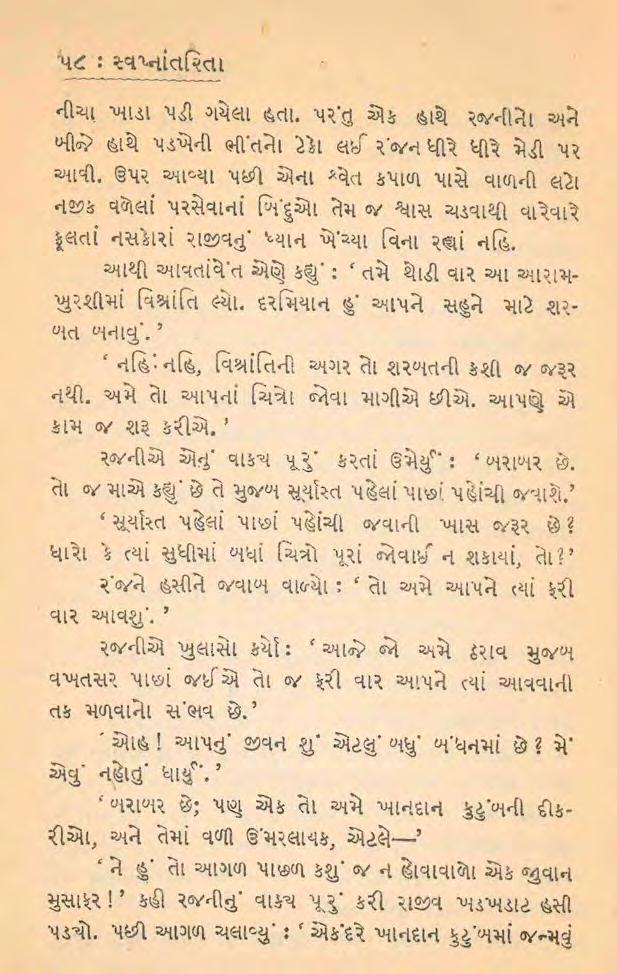 ૫૮ : સ્વપ્નાંતરિતા
નીચા ખાડા પડી ગયેલા હતા. પરંતુ એક હાથે રજનીનો અને
બીજે હાથે પડખેની ભીંતનો ટેકો લઈ રંજન ધીરે ધીરે મેડી પર
આવી. ઉપર આવ્યા પછી એના શ્વેત કપાળ પાસે વાળની લટો
નજીક વળેલાં પરસેવાનાં બિંદુઓ તેમ જ શ્વાસ ચડવાથી વારેવારે
ફૂલતાં નસકોરાં રાજીવનું ધ્યાન ખેંચ્યા વિના રહ્યાં નહિ.
આથી આવતાંવેંત એણે કહ્યું : ‘ તમે થોડી વાર આ આરામ-
ખુરશીમાં વિશ્રાંતિ લ્યો. દરમિયાન હું આપને સહુને માટે શર-
બત બનાવું. ’
‘ નહિ. નહિ, વિશ્રાંતિની અગર તો શરબતની કશી જ જરૂર
નથી. અમે તો આપનાં ચિત્રો જોવા માગીએ છીએ. આપણે એ
કામ જ શરૂ કરીએ. ’
રજનીએ એનું વાક્ય પૂરું કરતાં ઉમેર્યું : ‘ બરાબર છે.
તો જ માએ કહ્યું છે તે મુજબ સૂર્યાસ્ત પહેલાં પાછાં પહોંચી જવાશે.’
‘ સૂર્યાસ્ત પહેલાં પાછાં પહોંચી જવાની ખાસ જરૂર છે ?
ધારો કે ત્યાં સુધીમાં બધાં ચિત્રો પૂરાં જોવાઈ ન શકાયાં, તો ?’
રંજને હસીને જવાબ વાળ્યો : ‘ તો અમે આપને ત્યાં ફરી
વાર આવશું. ’
રજનીએ ખુલાસો કર્યો : ‘ આજે જો અમે ઠરાવ મુજબ
વખતસર પાછાં જઈએ તો જ ફરી વાર આપને ત્યાં આવવાની
તક મળવાનો સંભવ છે.’
‘ ઓહ ! આપનું જીવન શું એટલું બધું બંધનમાં છે ? મેં
એવું નહોતું ધાર્યું. ’
‘ બરાબર છે; પણ એક તો અમે ખાનદાન કુટુંબની દીક-
રીઓ, અને તેમાં વળી ઉંમરલાયક, એટલે—’
‘ ને હું તો આગળ પાછળ કશું જ ન હોવાવાળો એક જુવાન
મુસાફર ! ’ કહી રજનીનું વાક્ય પૂરું કરી રાજીવ ખડખડાટ હસી
પડ્યો. પછી આગળ ચલાવ્યું : ‘ એકંદરે ખાનદાન કુટુંબમાં જન્મવું